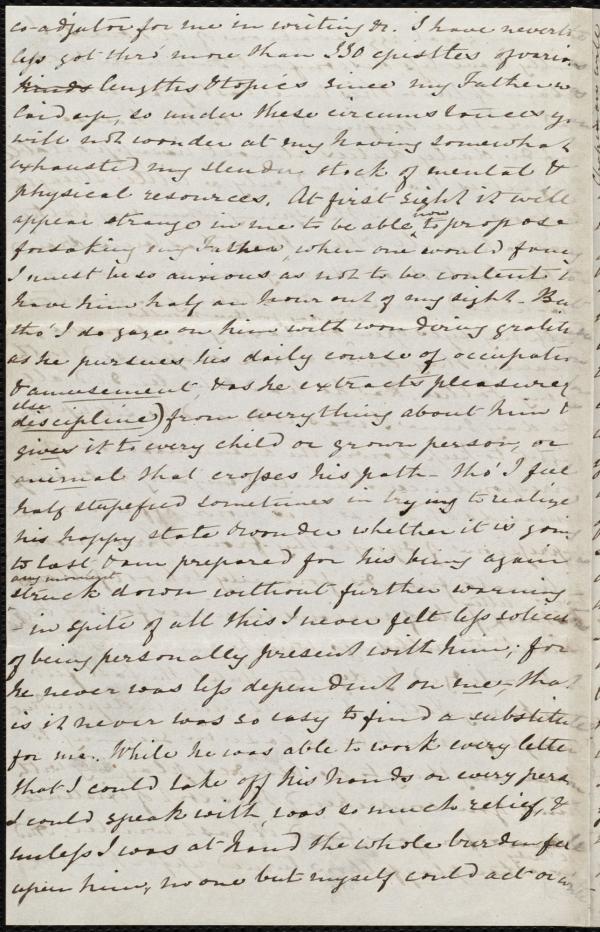 co-adjutor for me in writing &c. I have neverth
less got thro' more than 330 epistles of vario
kinds lengths & topics since my Father w
laid up, so under these circumstances y
will not wonder at my having somewhat
exhausted my slender stock of mental &
physical resources. At first sight it will
appear strange in me to be able now to propose
forsaking my Father, when one would fancy
I must be so anxious as not to be content to
have him half an hour out of my sight - But
tho' I do gaze on him with wondering gratitu
as he pursues his daily course of occupation
& amusement, & as he extracts pleasure (
else
discipline) from everything about him &
gives it to every child or grown person, or
animal that crosses his path - tho' I feel
half stupefied sometimes in trying to realize
his happy state & wonder whether it is going
to last & am prepared for his being again
any moment
struck down without further warning -
- in spite of all this I never felt less solicit
of being personally present with him; for
he never was less dependent on me, that
is it never was so easy to find a substitute
for me. While he was able to work every letter
that I could take off his hands or every person
I could speak with, was so much relief, &
unless I was at hand the whole burden fell
upon him, no one but myself could act or